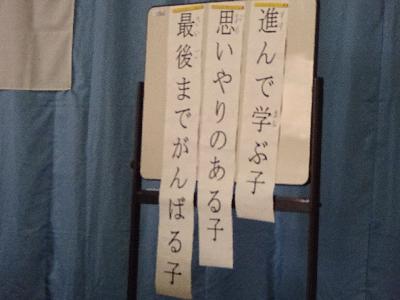 進んで学ぶ子
思いやりのある子
最後までがんばる子